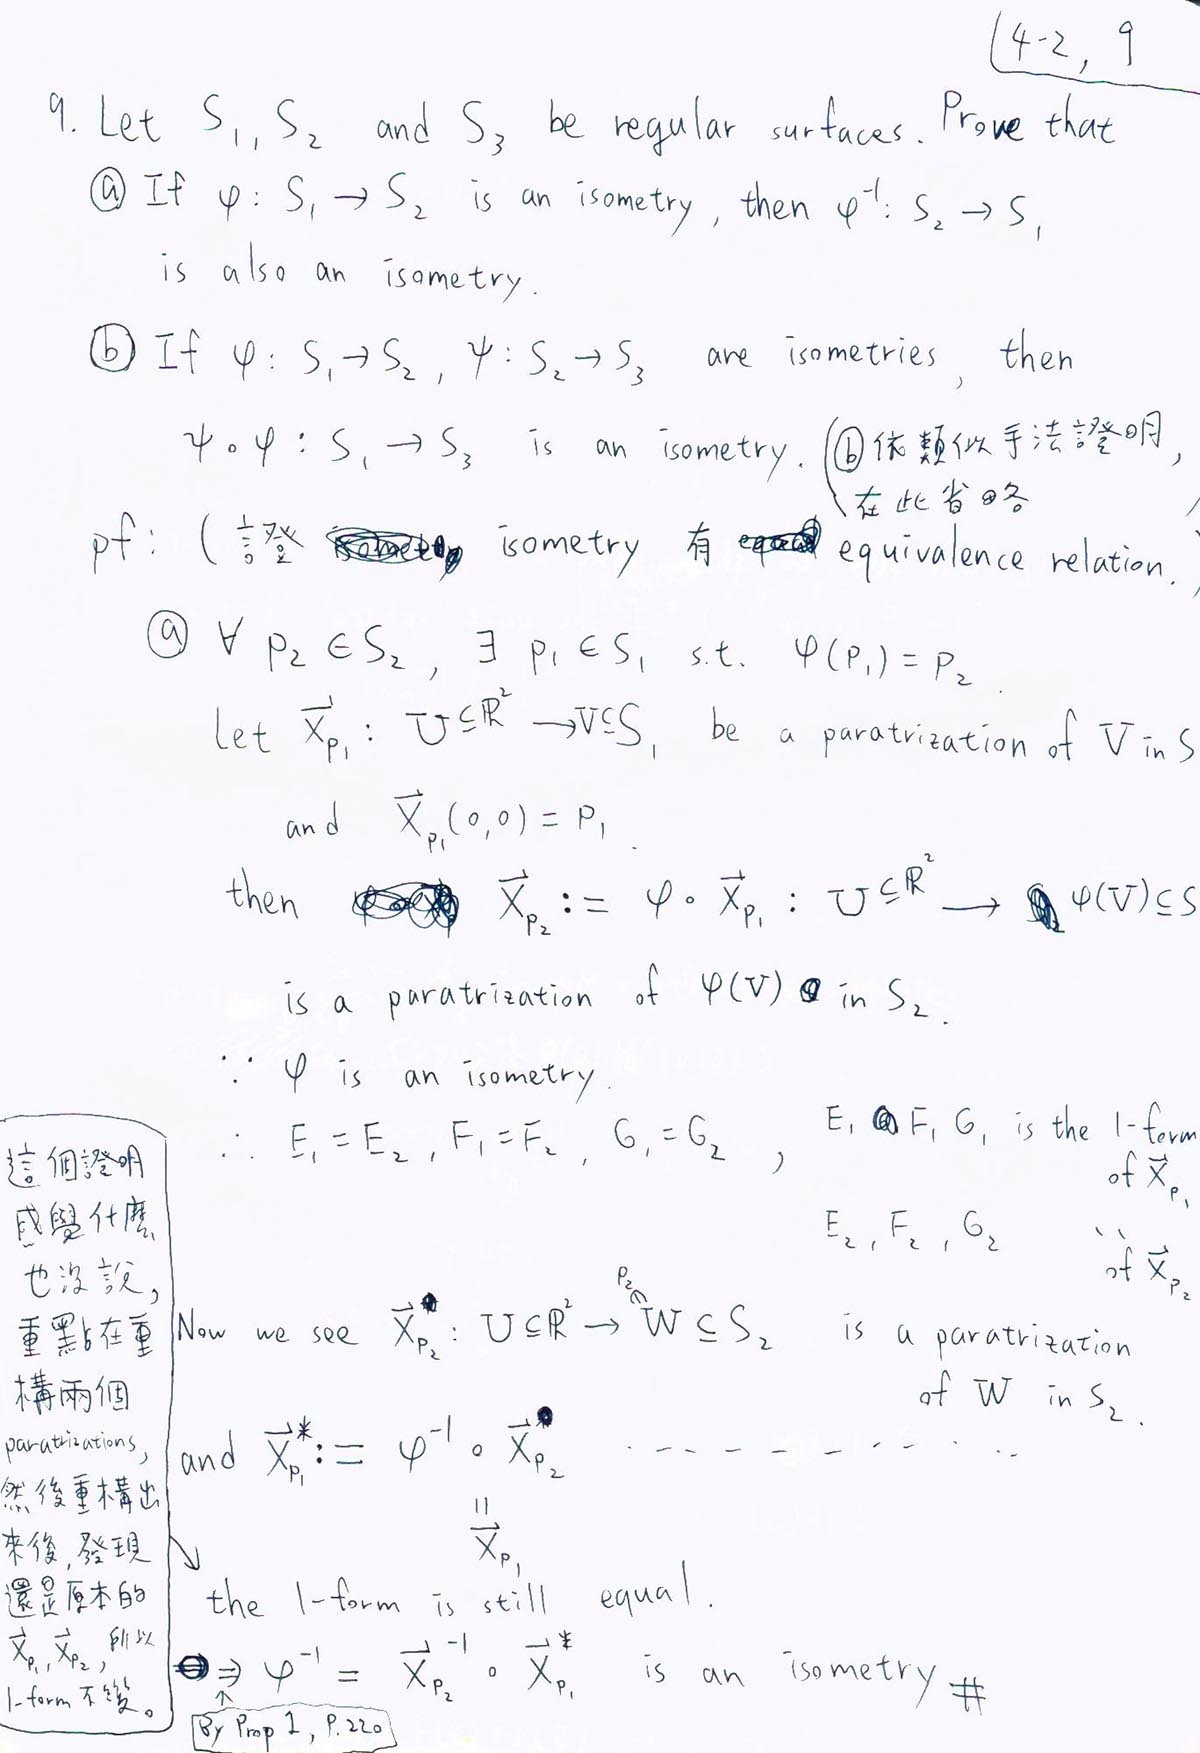 (4-2, 9
9. Let S₁, S₂ and S₃ be regular surfaces. Prove that
ⓐ If φ: S₁ → S₂ is an isometry, then φ⁻¹: S₂ → S₁
is also an isometry.
ⓑ If φ: S₁ → S₂, ψ: S₂ → S₃ are isometries, then
ψ∘φ: S₁ → S₃ is an isometry. (ⓑ 依類似手法證明,
在此省略)
pf: (證 isometry 有 equivalence relation.)
ⓐ ∀ p₂ ∈ S₂, ∃ p₁ ∈ S₁ s.t. φ(p₁) = p₂.
Let X⃗_p₁: U ⊆ ℝ² → V ⊆ S₁ be a paratrization of V in S
and X⃗_p₁(0,0) = p₁.
then X⃗_p₂ := φ∘X⃗_p₁: U ⊆ ℝ² → φ(V) ⊆ S
is a paratrization of φ(V) in S₂.
∵ φ is an isometry.
∴ E₁ = E₂, F₁ = F₂, G₁ = G₂, E₁ F₁ G₁ is the 1-form
of X⃗_p₁
E₂, F₂, G₂ 〃
of X⃗_p₂
Now we see X⃗_p₂: U ⊆ ℝ² → W ⊆ S₂ is a paratrization
p₂ ∈
of W in S₂.
and X⃗*_p₁ := φ⁻¹∘X⃗_p₂ - - - - - - - - -
=
X⃗_p₁
the 1-form is still equal.
⇒ φ⁻¹ = X⃗_p₂⁻¹ ∘ X⃗*_p₁ is an isometry #
By Prop 1, P.220
這個證明
感覺什麼
也沒說,
重點在重
構兩個
paratrizations,
然後重構出
來後, 發現
還是原本的
X⃗_p₁, X⃗_p₂, 所以
1-form 不變。